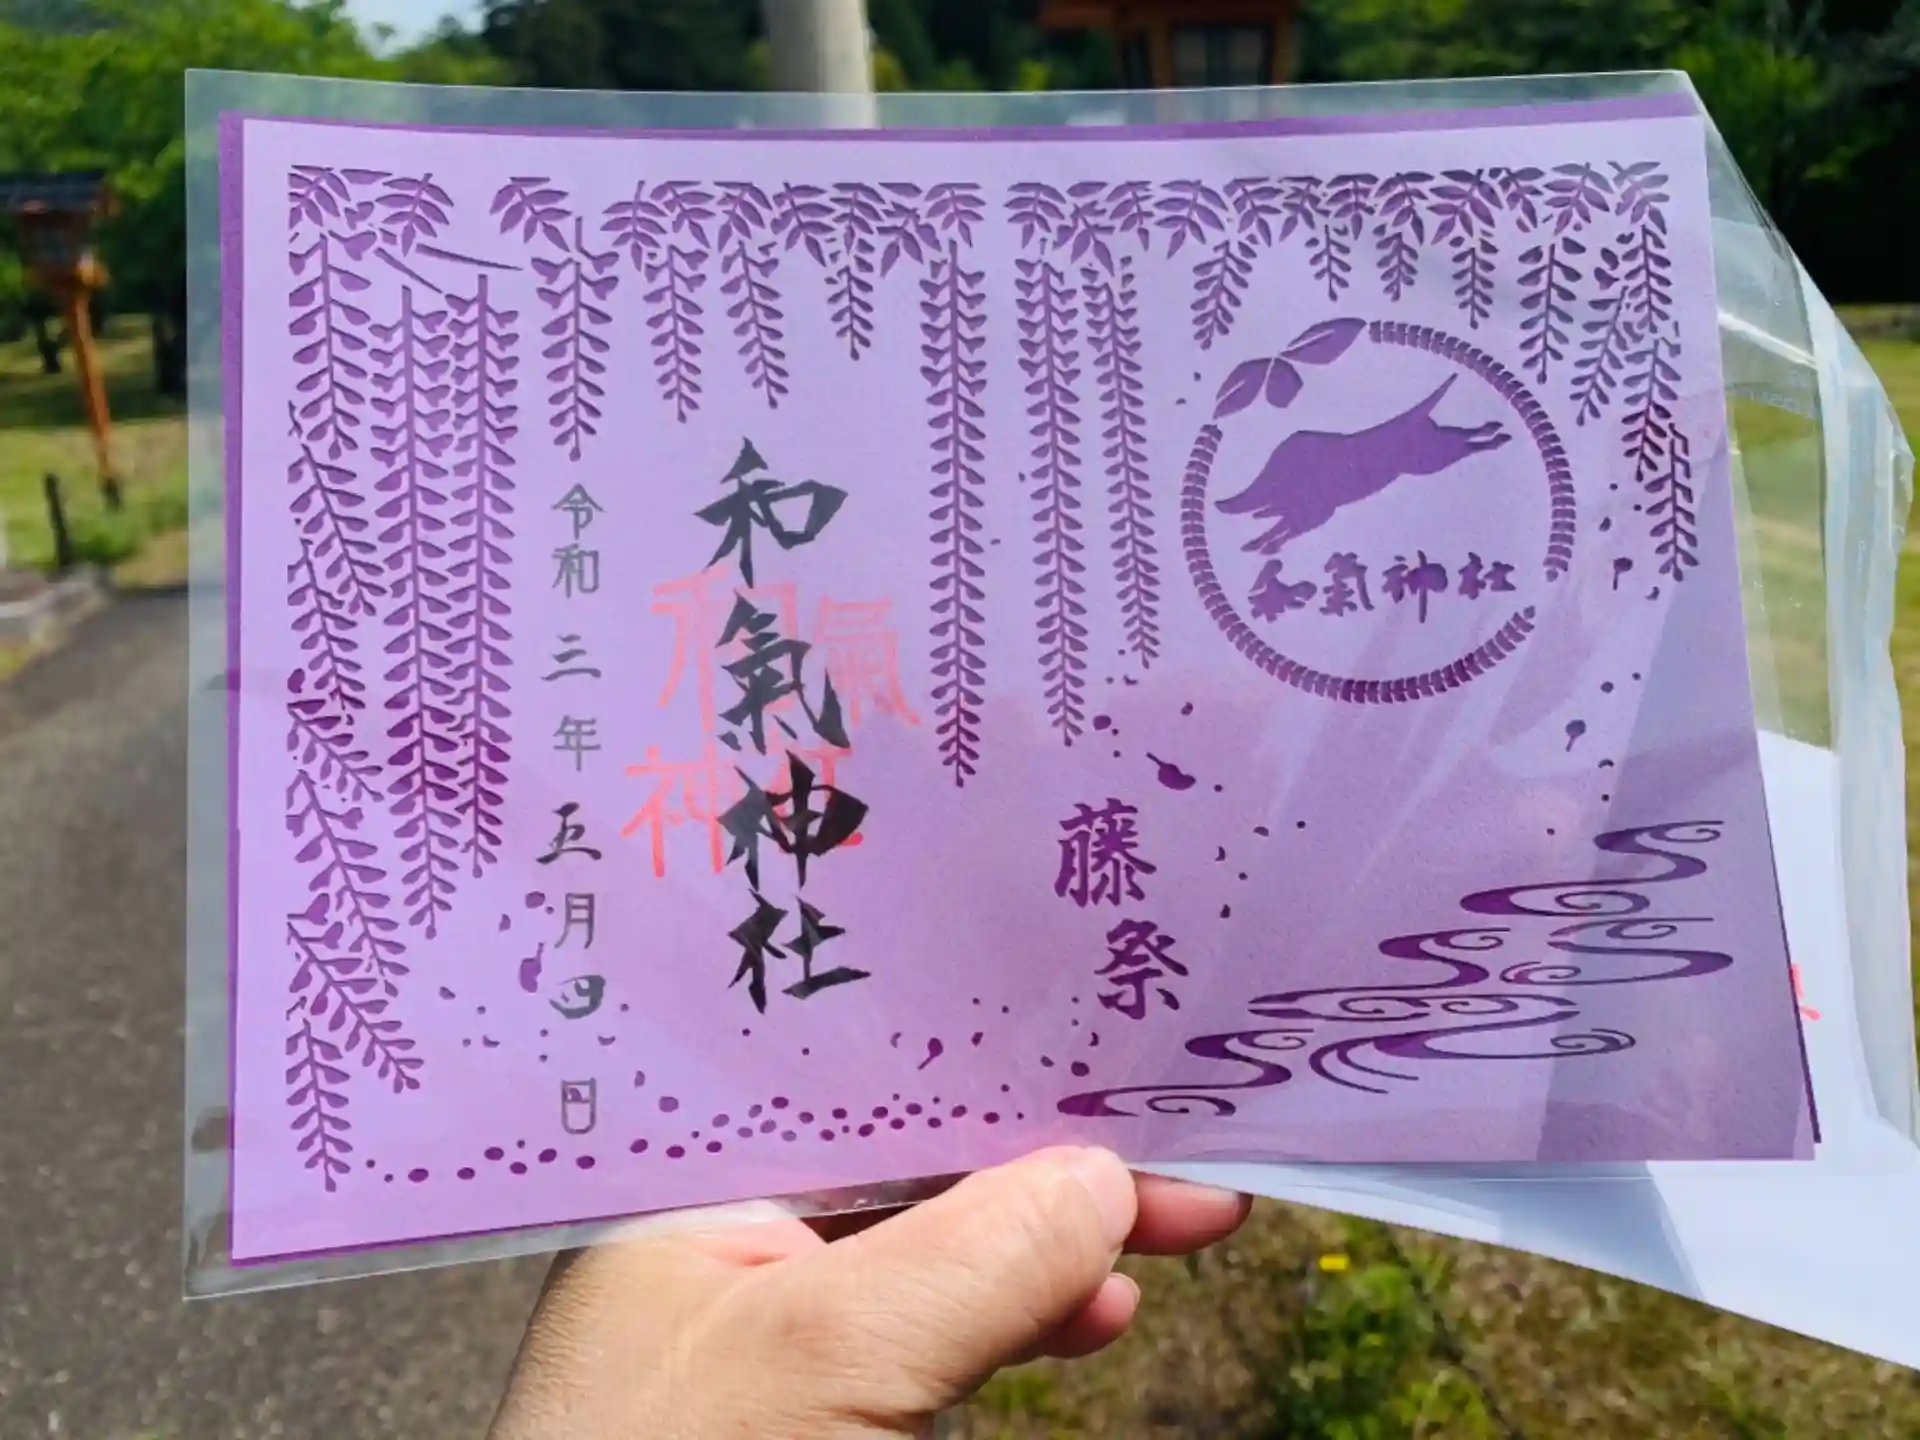 和氣神社
藤祭
和氣神社
和氣
神社
令和三年五月四日